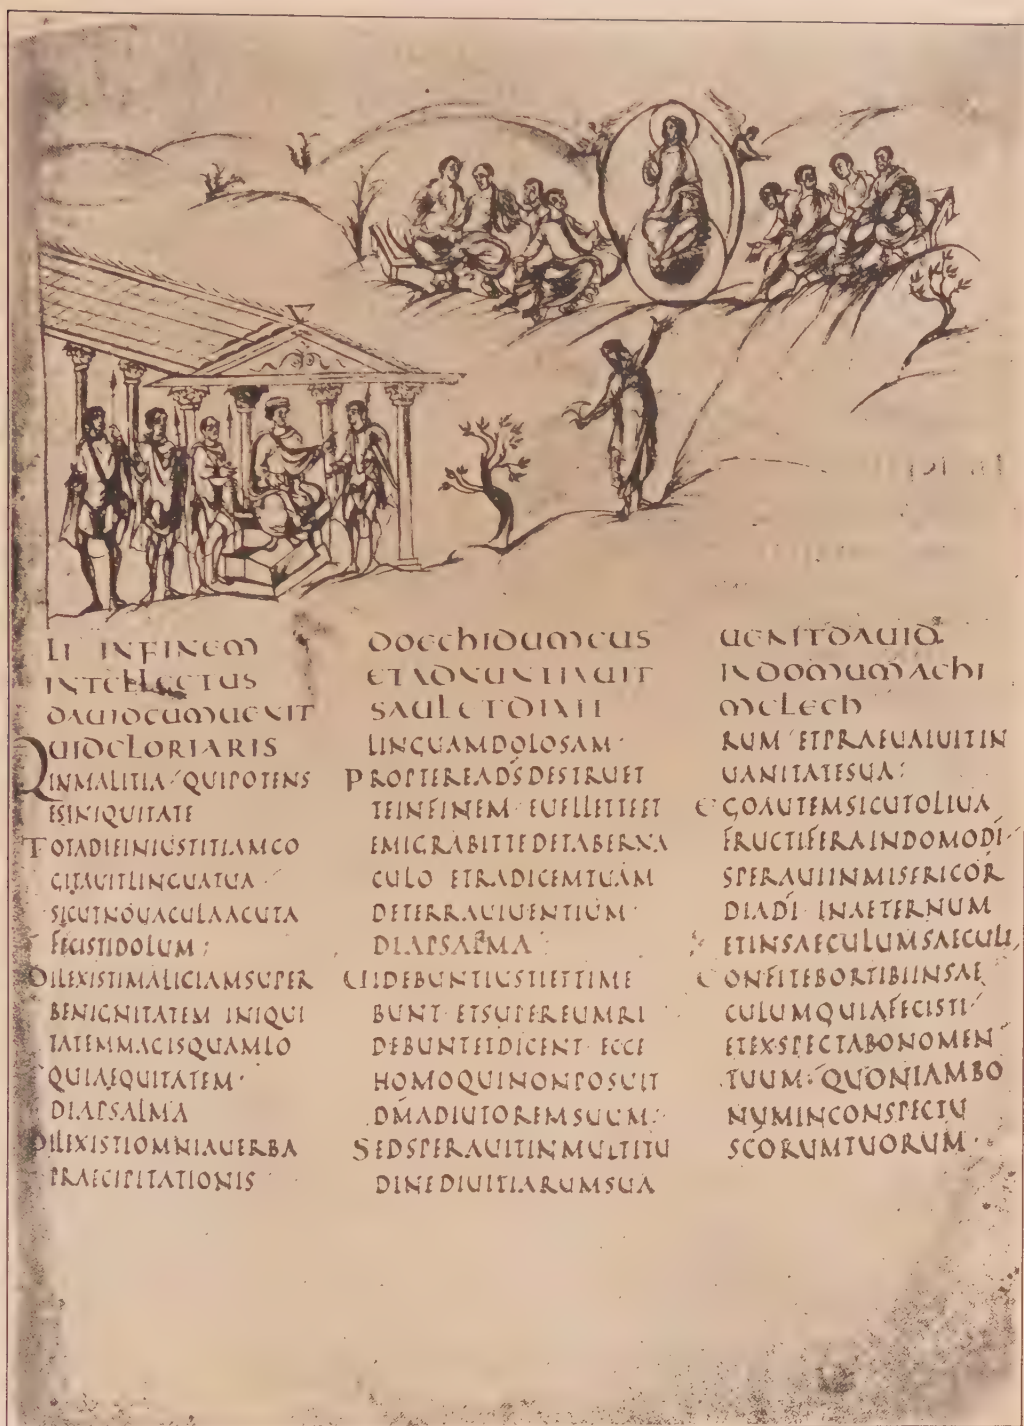 LI INFINEM
INTELLECTUS
DAUIDCUMUENIT
DOECHIDUMEUS
ETADNUNTIAUIT
SAULETDIXIT
UENITDAUID
INDOMUMACHI
MELECH
QUIDGLORIARIS
INMALITIA QUIPOTENS
ESINIQUITATE
TOTADIEINIUSTITIAMCO
GITAUITLINGUATUA
SICUTNOUACULAACUTA
FECISTIDOLUM:
DILEXISTIMALICIAMSUPER
BENIGNITATEM INIQUI
TATEMMAGISQUAMLO
QUIAEQUITATEM·
DIAPSALMA
DILEXISTIOMNIAUERBA
PRAECIPITATIONIS
LINGUAMDOLOSAM·
PROPTEREADS̄DESTRUET
TEINFINEM EUELLETTEET
EMIGRABITTEDETABERNA
CULO ETRADICEMTUAM
DETERRAUIUENTIUM·
DIAPSALMA
UIDEBUNTIUSTIETTIME
BUNT ETSUPEREUMRI
DEBUNTETDICENT ECCE
HOMOQUINONPOSUIT
DM̄ADIUTOREMSUUM:
SEDSPERAUITINMULTITU
DINEDIUITIARUMSUA
RUM ETPRAEUALUITIN
UANITATESUA:
EGOAUTEMSICUTOLIUA
FRUCTIFERAINDOMODĪ
SPERAUIINMISERICOR
DIADĪ INAETERNUM
ETINSAECULUMSAECULI,
CONFITEBORTIBIINSAE
CULUMQUIAFECISTI
ETEXSPECTABONOMEN
TUUM: QUONIAMBO
NUMINCONSPECTU
SC̄ORUMTUORUM·